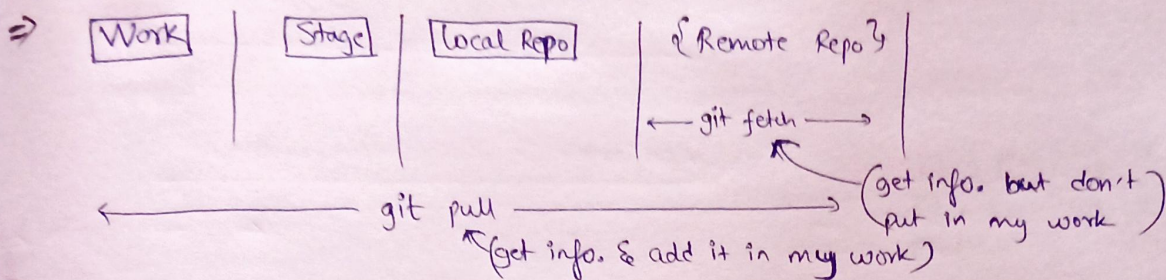 ⇒ Work Stage Local Repo {Remote Repo}
← git fetch →
(get info. but don't
put in my work)
← git pull →
(get info. & add it in my work)